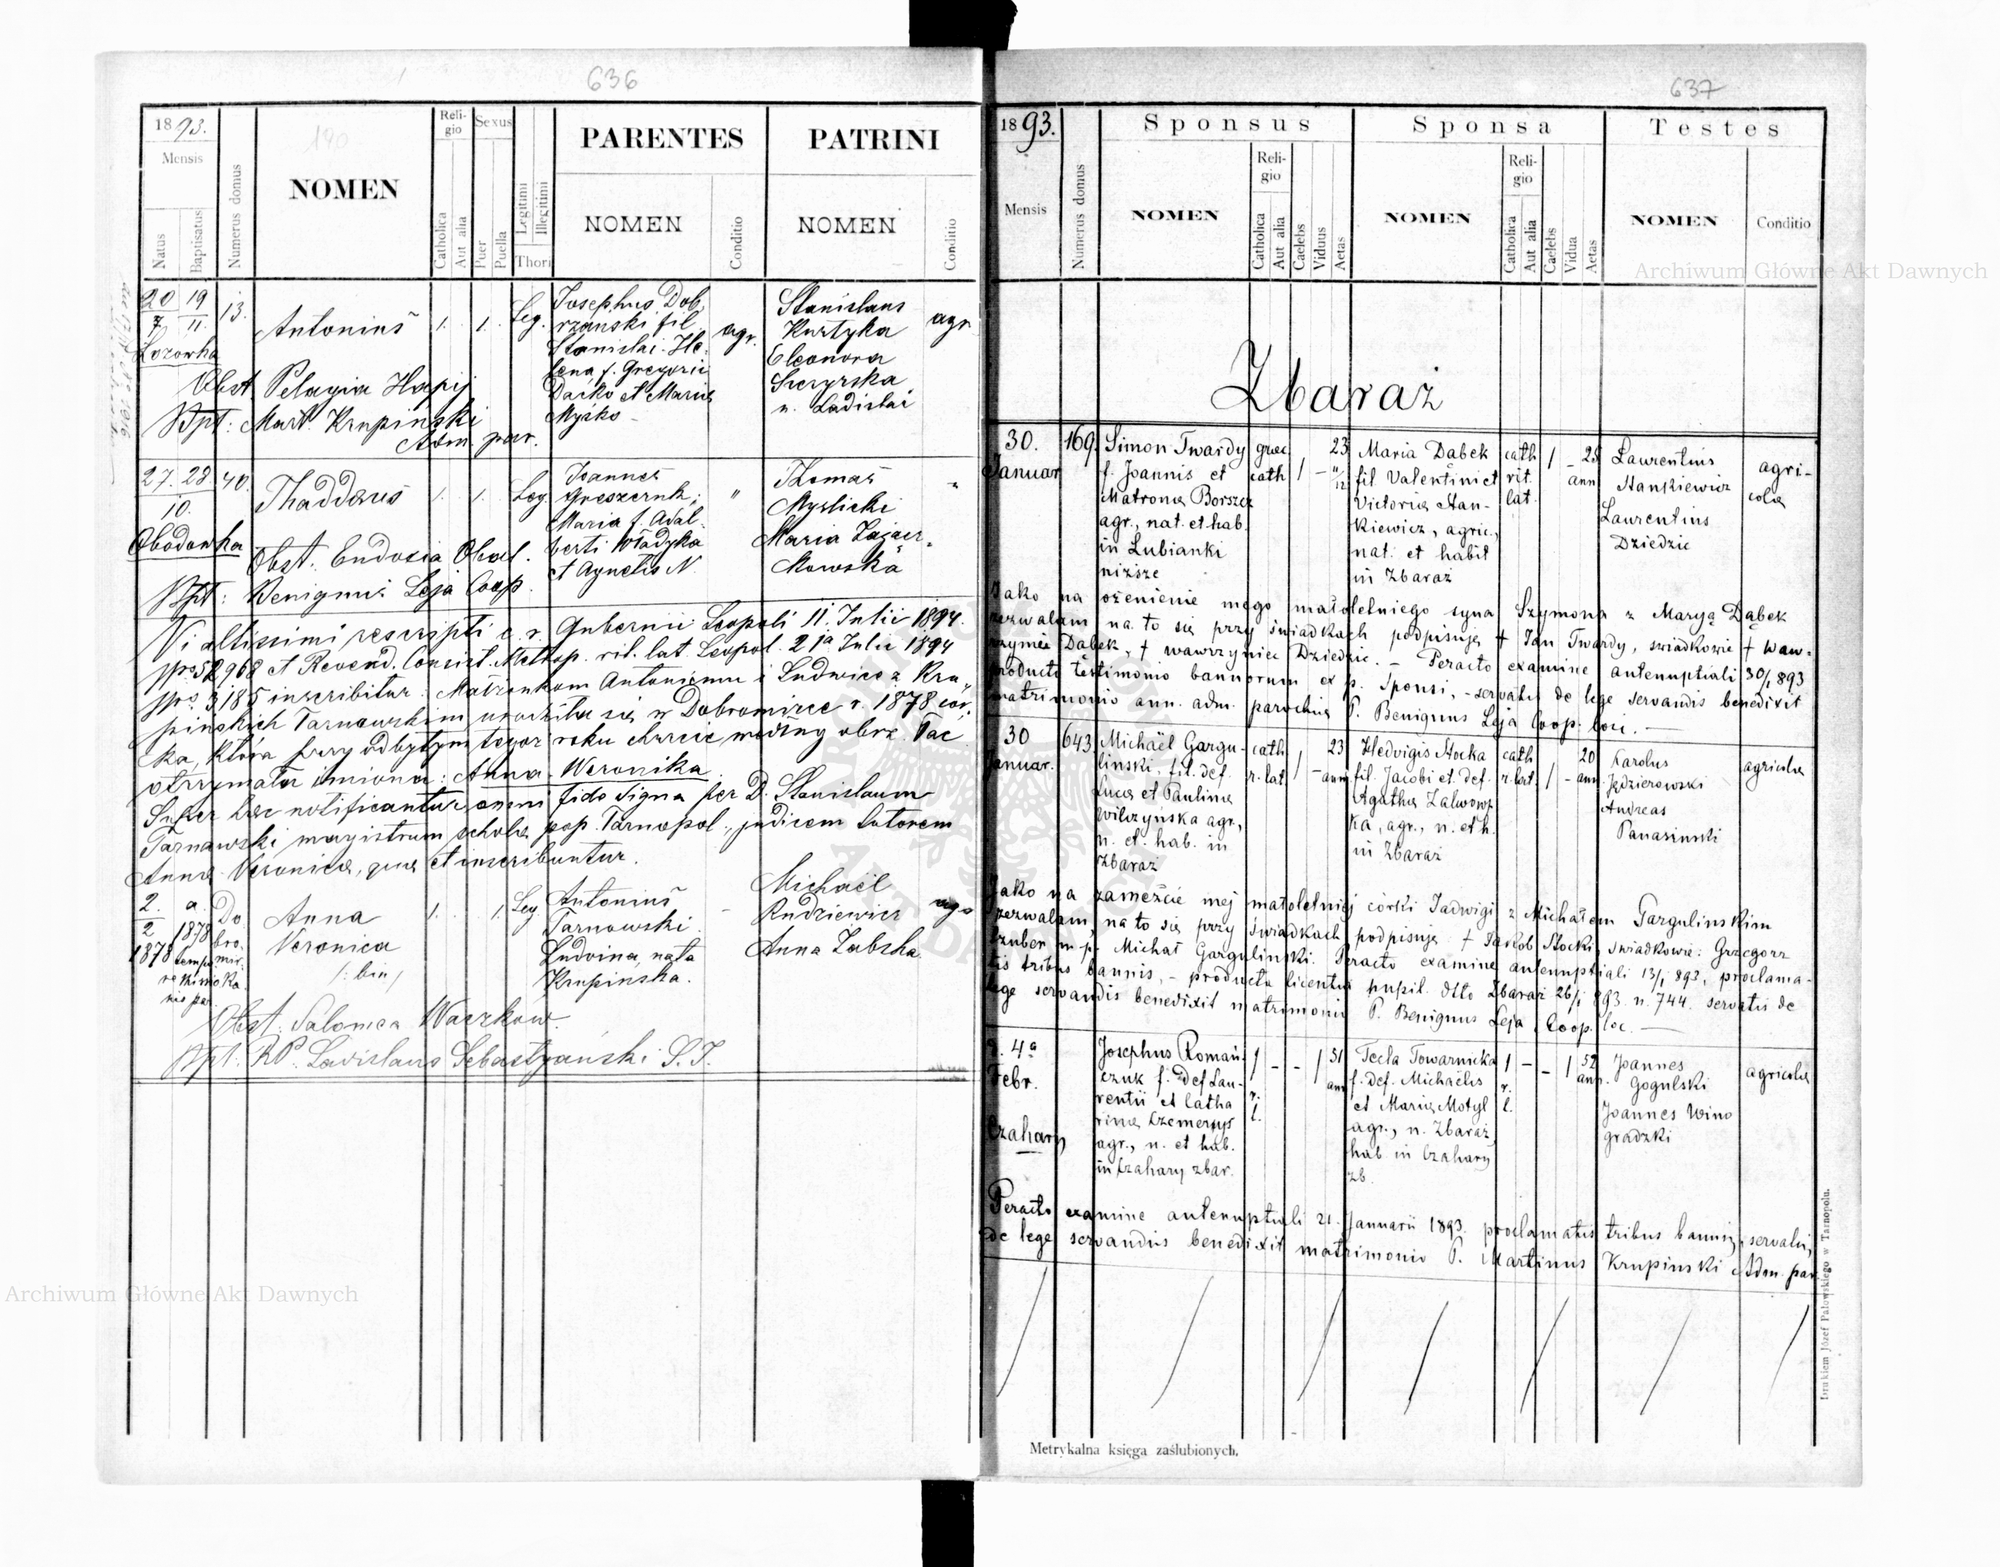 636
1893.
Mensis
Natus
Baptisatus
Numerus domus
190
NOMEN
Reli-
gio
Catholica
Aut alia
Sexus
Puer
Puella
Legitimi
Illegitimi
Thori
PARENTES
NOMEN
Conditio
PATRINI
NOMEN
Conditio
20 19
7 11
Lozowka
13.
Antonius
1. 1. Leg.
Josephus Dob
rzanski fil
Stanislai. He
lena f. Gregorii
Daćko et Maria
Myśko
agr.
Stanislaus
Kurtyka
Eleonora
Szczyrska
u. Ladislai
agr.
Obst Pelagia Hapij
Bpt: Mart. Krupinski
Adm. par.
27. 28
10.
Obodowka
40.
Thaddäus
1. 1. Leg
Joannes
Greszczuk;
Maria f. Adal-
berti Władyka
et Agnetis N.
"
Thomas
Myslicki
Maria Zającz-
kowska
"
Obst. Eudosia Obal.
Bpt: Benignus Leja Coop.
Vi altissimi rescripti c. r. Gubernii Leopoli 11. Julii 1894.
52968 et Revend. Consist. Metrop. rit. lat. Leopol. 21a Julii 1894
3185 inscribitur: Małżonkom Antoniemu i Ludwice z Kru-
pinskich Tarnawskim urodziła się w Dobromirce r. 1878 cór-
ka, która przy odbytym tegoż roku chrzcie według obrz. łac
otrzymała imiona: Anna Weronika.
Super hæc notificantur omni fide digna per D. Stanislaum
Tarnawski magistrum schola pop. Tarnopol.; judicem latorem
Anna Veronica, quæ et inscribuntur.
2. a. Do
2 1878 bro
1878 temp. mir-
ka
Anna
Veronica
/: bin/
1. 1. Leg
Antonius
Tarnowski
Ludvina, nata
Krupinska.
-
Michaël
Rudziewicz
Anna Zabska
agr
Obst: Salomea Waczkow.
Bpt. RP. Ladislaus Sebastyański S.J.
637
1893.
Mensis
Numerus domus
Sponsus
NOMEN
Reli-
gio
Catholica
Aut alia
Caelebs
Viduus
Aetas
Sponsa
NOMEN
Reli-
gio
Catholica
Aut alia
Caelebs
Vidua
Aetas
Testes
NOMEN
Conditio
Zbaraż
30.
Januar
169.
Simon Twardy
f. Joannis et
Matrona Borszcz
agr., nat. et hab.
in Lubianki
niższe
grec
cath
1 -
23
11/12
Maria Dąbek
fil Valentini et
Victoria Stan-
kiewicz, agric.,
nat. et habit
in Zbaraż
cath
rit.
lat.
1 -
25
ann
Laurentius
Stankiewicz
Laurentius
Dziedzic
agri-
cola
Jako na ożenienie mego małoletniego syna Szymona z Maryą Dąbek
zezwalam na to się przy świadkach podpisuję + Jan Twardy, świadkowie + Waw-
rzyniec Dąbek, + wawrzyniec Dziedzic. - Peracto examine antenuptiali 30/1 893
producti testimonio bannorum ex p. Sponsi, - servatis de lege servandis benedixit
matrimonio ann. adm. parochiæ P. Benignus Leja Coop. loci. -
30
Januar.
643
Michaël Gargu-
linski, fil. def.
Lucæ et Paulina
Wilczynska agr.,
n. et. hab. in
Zbaraż
cath
r. lat
1 -
23
ann
Hedvigis Stocka
fil. Jacobi et def.
Agatha Zalwows-
ka, agr., n. et h.
in Zbaraż
cath
r. lat.
1 -
20
ann.
Karolus
Jędzierowski
Andreas
Panasinski
agricola
Jako na zamężcie mej małoletniej córki Jadwigi z Michałem Gargulinskim
zezwalam, na to się przy świadkach podpisuję + Jakob Stocki, świadkowie: Grzegorz
m. p. Michał Gargulinski. Peracto examine antenuptiali 13/1 893, proclama-
tis tribus bannis, - producta licentia pupil. dtto Zbaraż 26/1 893. n. 744. servatis de
lege servandis benedixit matrimonio P. Benignus Leja Coop. loc. -
d. 4a
Febr.
Czahary
Josephus Romań-
czuk f. def Lau-
rentii et Catha
rina Czemerys
agr., n. et hab.
in Czahary zbar.
1
r.
l.
- - 1
51
ann
Tecla Towarnicka
f. def. Michaëlis
et Maria Motyl
agr., n. Zbaraż
hab. in Czahary
zb.
1
r.
l.
- - 1
52
ann.
Joannes
Gogulski
Joannes Wino
gradzki
agricola
Peracto examine antenuptiali 21. Januarii 1893. proclamatis tribus bannis, servatis
de lege servandis benedixit matrimonio P. Martinus Krupinski Adm. par.
Metrykalna księga zaślubionych.
Drukiem Józef Pałowskiego w Tarnopolu.
Archiwum Główne Akt Dawnych
Archiwum Główne Akt Dawnych